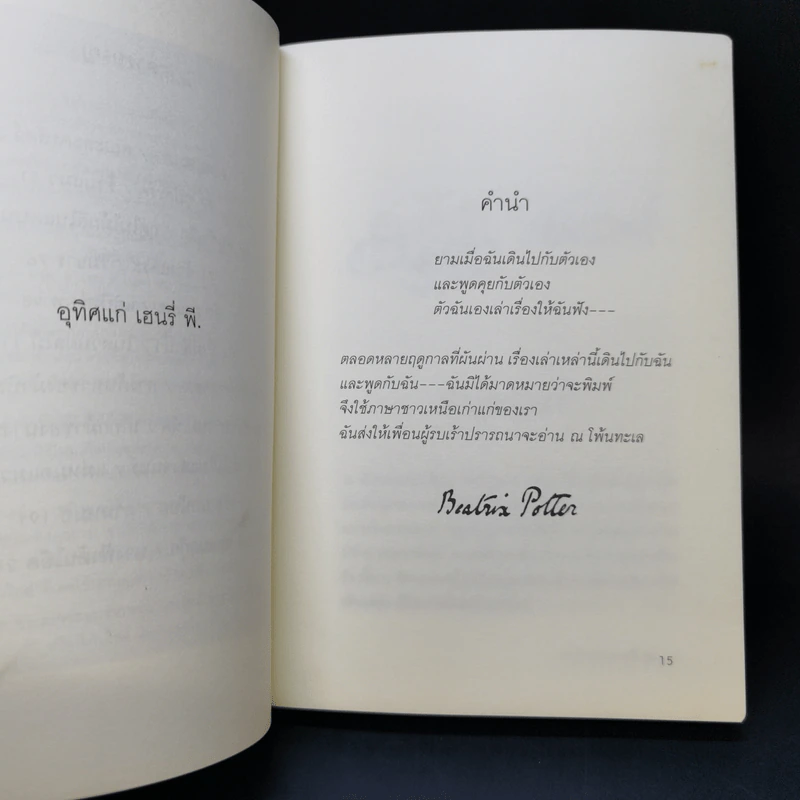 อุทิศแก่ เฮนรี่ พี.
คำนำ
ยามเมื่อฉันเดินไปกับตัวเอง
และพูดคุยกับตัวเอง
ตัวฉันเองเล่าเรื่องให้ฉันฟัง---
ตลอดหลายฤดูกาลที่ผันผ่าน เรื่องเล่าเหล่านี้เดินไปกับฉัน
และพูดกับฉัน---ฉันมิได้มาดหมายว่าจะพิมพ์
จึงใช้ภาษาชาวเหนือเก่าแก่ของเรา
ฉันส่งให้เพื่อนผู้รบเร้าปรารถนาจะอ่าน ณ โพ้นทะเล
Beatrix Potter
15